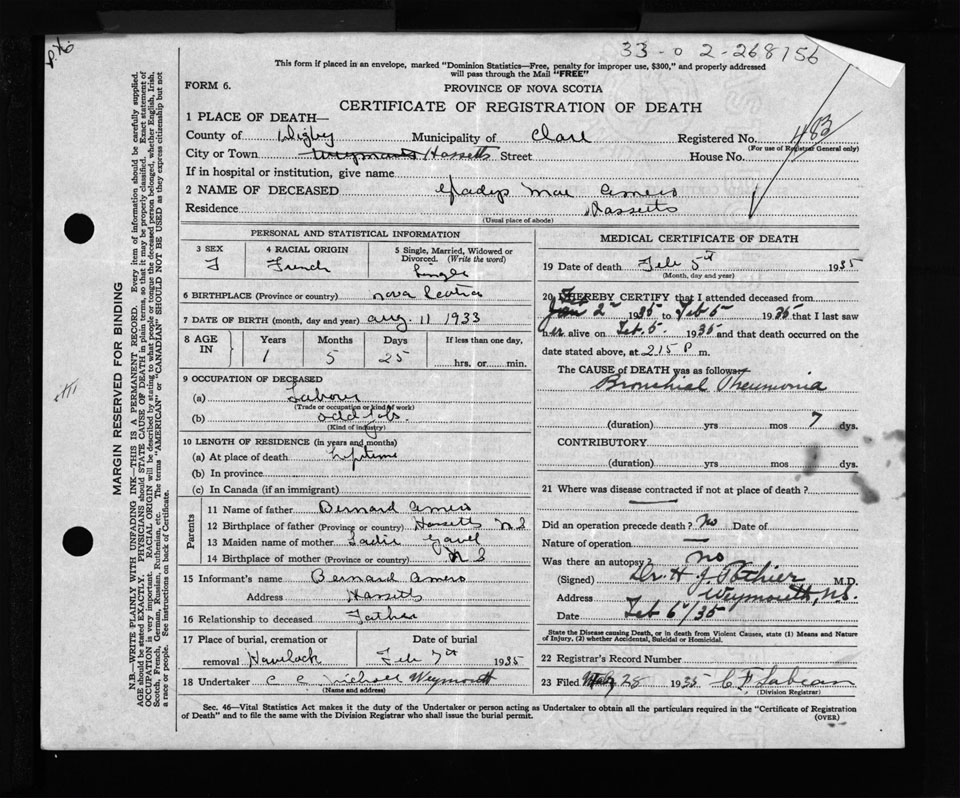 33-02-268756
This form if placed in an envelope, marked "Dominion Statistics—Free, penalty for improper use, $300," and properly addressed
will pass through the Mail "FREE"
FORM 6.
PROVINCE OF NOVA SCOTIA
CERTIFICATE OF REGISTRATION OF DEATH
MARGIN RESERVED FOR BINDING
N.B.—WRITE PLAINLY WITH UNFADING INK—THIS IS A PERMANENT RECORD. Every item of information should be carefully supplied.
AGE should be stated EXACTLY. PHYSICIANS should STATE CAUSE OF DEATH in plain terms, so that it may be properly classified. Exact statement of
OCCUPATION is very important. RACIAL ORIGIN will be described by stating to what people or tongue the deceased person belonged, whether English, Irish,
Scotch, French, German, Russian, Ruthenian, etc. The terms "AMERICAN" or "CANADIAN" SHOULD NOT BE USED as they express citizenship but not
a race or people. See instructions on back of Certificate.
1 PLACE OF DEATH—
County of Digby Municipality of Clare Registered No. 483
(For use of Registrar General only)
City or Town Weymouth Hassetts Street House No.
If in hospital or institution, give name
2 NAME OF DECEASED Gladys Mae Amero
Residence Hassetts
(Usual place of abode)
PERSONAL AND STATISTICAL INFORMATION
3 SEX F
4 RACIAL ORIGIN French
5 Single, Married, Widowed or Divorced. (Write the word) Single
6 BIRTHPLACE (Province or country) Nova Scotia
7 DATE OF BIRTH (month, day and year) Aug. 11 1933
8 AGE IN Years Months Days If less than one day,
1 5 25 hrs. or min.
9 OCCUPATION OF DECEASED
(a) Labour
(Trade or occupation or kind of work)
(b) odd jobs
(Kind of industry)
10 LENGTH OF RESIDENCE (in years and months)
(a) At place of death Lifetime
(b) In province
(c) In Canada (if an immigrant)
Parents
11 Name of father Bernard Amero
12 Birthplace of father (Province or country) Hassetts N.S
13 Maiden name of mother Sadie Gavel
14 Birthplace of mother (Province or country) N S
15 Informant's name Bernard Amero
Address Hassetts
16 Relationship to deceased Father
17 Place of burial, cremation or removal Havelock
Date of burial Feb 7th 1935
18 Undertaker C C Nichols Weymouth
(Name and address)
MEDICAL CERTIFICATE OF DEATH
19 Date of death Feb 5th 1935
(Month, day and year)
20 I HEREBY CERTIFY that I attended deceased from
Feb Jan 2 1935 to Feb 5 1935 that I last saw
her alive on Feb. 5. 1935 and that death occurred on the
date stated above, at 2 15 P m.
The CAUSE of DEATH was as follows
Bronchial Pneumonia
(duration) yrs mos 7 dys.
CONTRIBUTORY
(duration) yrs mos dys.
21 Where was disease contracted if not at place of death?
Did an operation precede death? No Date of
Nature of operation —
Was there an autopsy No
(Signed) Dr. H J Pothier M.D.
Address Weymouth, N.S.
Date Feb 6/35
State the Disease causing Death, or in death from Violent Causes, state (1) Means and Nature
of Injury, (2) whether Accidental, Suicidal or Homicidal.
22 Registrar's Record Number
23 Filed 28 1935 C F Sabean
(Division Registrar)
Sec. 46—Vital Statistics Act makes it the duty of the Undertaker or person acting as Undertaker to obtain all the particulars required in the "Certificate of Registration
of Death" and to file the same with the Division Registrar who shall issue the burial permit.
(OVER)